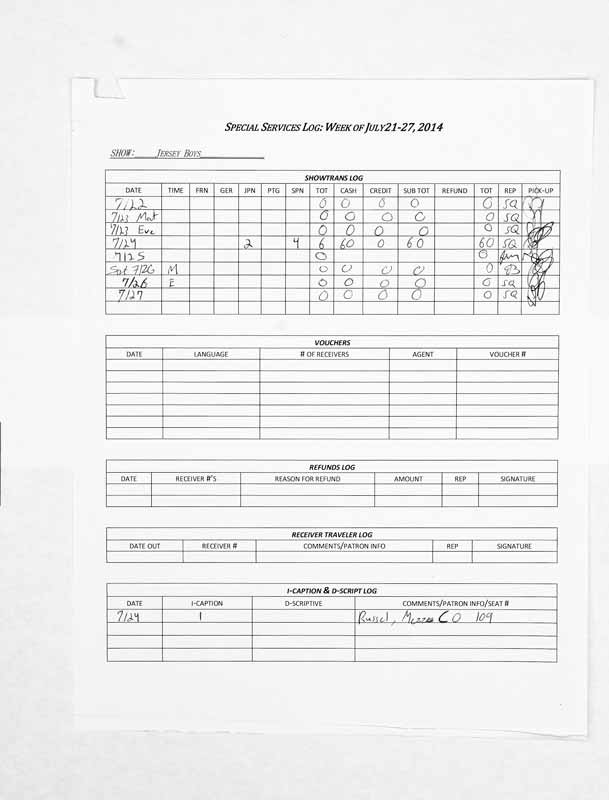 SPECIAL SERVICES LOG: WEEK OF JULY21-27, 2014
SHOW: JERSEY BOYS
SHOWTRANS LOG
DATE TIME FRN GER JPN PTG SPN TOT CASH CREDIT SUB TOT REFUND TOT REP PICK-UP
7/22 0 0 0 0 0 SQ
7/23 Mat 0 0 0 0 0 SQ
7/23 Eve 0 0 0 0 0 SQ
7/24 2 4 6 60 0 60 60 SQ
7/25 0 0
Sat 7/26 M 0 0 0 0 0
7/26 E 0 0 0 0 0 SQ
7/27 0 0 0 0 0 SQ
VOUCHERS
DATE LANGUAGE # OF RECEIVERS AGENT VOUCHER #
REFUNDS LOG
DATE RECEIVER #'S REASON FOR REFUND AMOUNT REP SIGNATURE
RECEIVER TRAVELER LOG
DATE OUT RECEIVER # COMMENTS/PATRON INFO REP SIGNATURE
I-CAPTION & D-SCRIPT LOG
DATE I-CAPTION D-SCRIPTIVE COMMENTS/PATRON INFO/SEAT #
7/24 1 Russel, Mezza C O 109